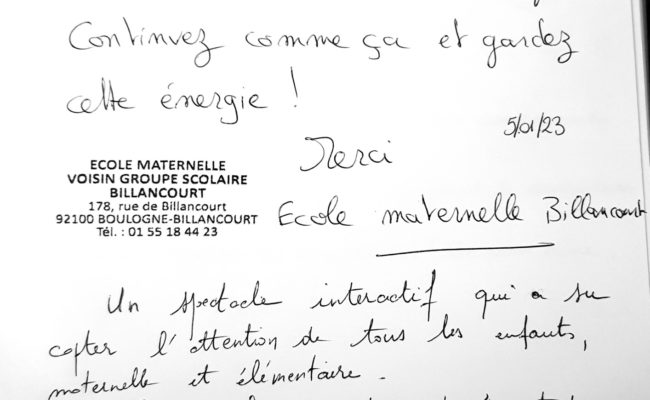 Continuez comme ça et gardez
cette énergie !
5/01/23
Merci
ECOLE MATERNELLE
VOISIN GROUPE SCOLAIRE
BILLANCOURT
178, rue de Billancourt
92100 BOULOGNE-BILLANCOURT
Tél. : 01 55 18 44 23
Ecole maternelle Billancourt
Un spectacle interactif qui a su
capter l'attention de tous les enfants,
maternelle et élémentaire.